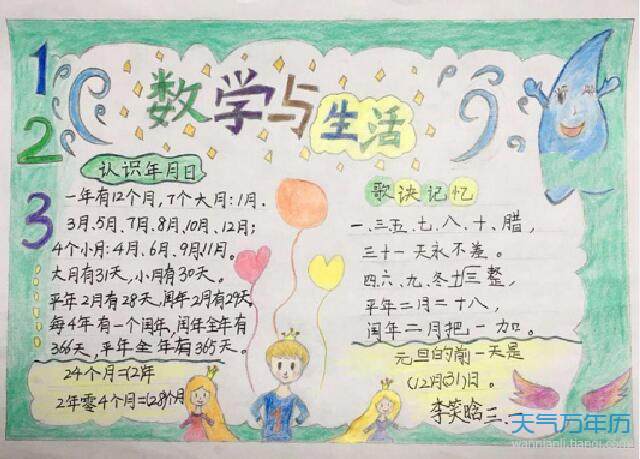 1
2
3
数学与生活
认识年月日
一年有12个月,7个大月:1月、
3月、5月、7月、8月、10月、12月;
4个小月:4月、6月、9月、11月。
大月有31天,小月有30天。
平年2月有28天,闰年2月有29天
每4年有一个闰年,闰年全年有
366天,平年全年有365天。
24个月=(2)年
2年零4个月=(28)个月
歌诀记忆
一、三五、七、八、十、腊,
三十一天永不差。
四、六、九、冬三十整,
平年二月二十八,
闰年二月把一加。
元旦的前一天是
(12)月(31)日。
李笑晗 三、二
天气万年历
wannianli.tianqi.com